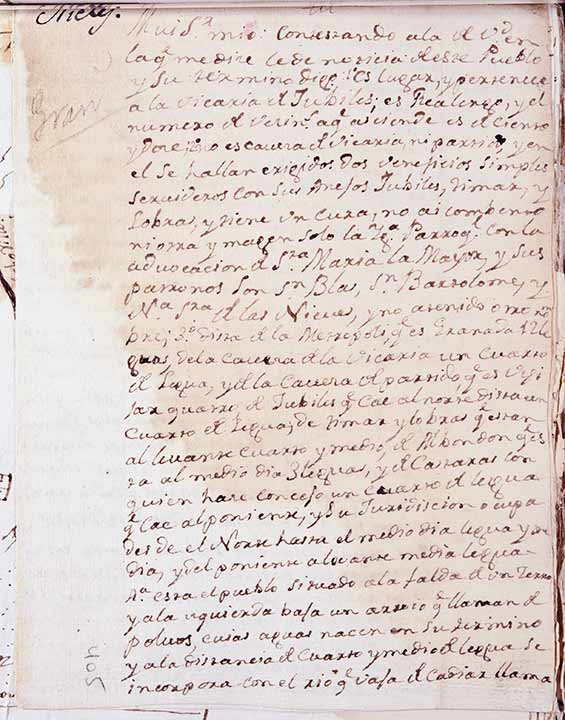 Nieles.
Gran
Mui Sr. mio: Contestando a la de Vd en
la qe me dize le de noticia de este Pueblo
y su termino digo 1º es lugar, y pertenece
a la Vicaria de Jubiles; es Realengo, y el
numero de vezins. a qe asciende es de Ciento
y doze No es cavera de Vicaria, ni partido y en
el se hallan erigidos dos Veneficios Simples
servideros con sus Anejos Jubiles, timar, y
Lobras, y tiene un cura, no ai combento
ni otra y magen solo la Yga Parroql con la
advocacion de Sta Maria la Mayor, y sus
patronos son Sn Blas, Sn Bartolome, y
Na Sra de las Nieves, y no a tenido otro nom
bre; 3º Dista de la Metropoli, qe es Granada 12 le
guas, de la Cavera de la Vicaria un Cuarto
de legua, y de la Cavera de partido qe es Vgi
jar quatro de Jubiles qe Cae al norte dista un
Cuarto de legua; de timar y lobras qe estan
al levante Cuarto y medio, de Albondon qe es
ta al medio dia 3 leguas, y de Castaras Con
quien hase Concejo un Cuarto de legua
qe Cae al poniente, y su Jurisdiscion ocupa
desde el Norte hasta el medio dia legua y me
dia, y del poniente a levante media legua
4ª esta el pueblo situado a la falda de un Zerro
y a la izquierda baja un arroio qe llaman de
polvos, cuias aguas nacen en su termino
y a la distancia de Cuarto y medio de legua se
incorpora con el rio qe vaja de Cadiar llama
504